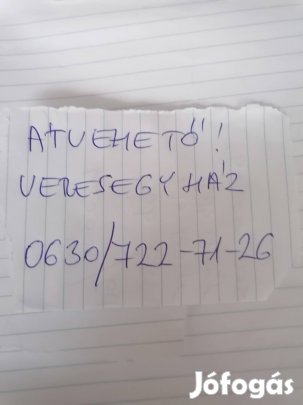 ÁTVEHETŐ!
VERESEGYHÁZ
0630/722-71-26
Jófogás